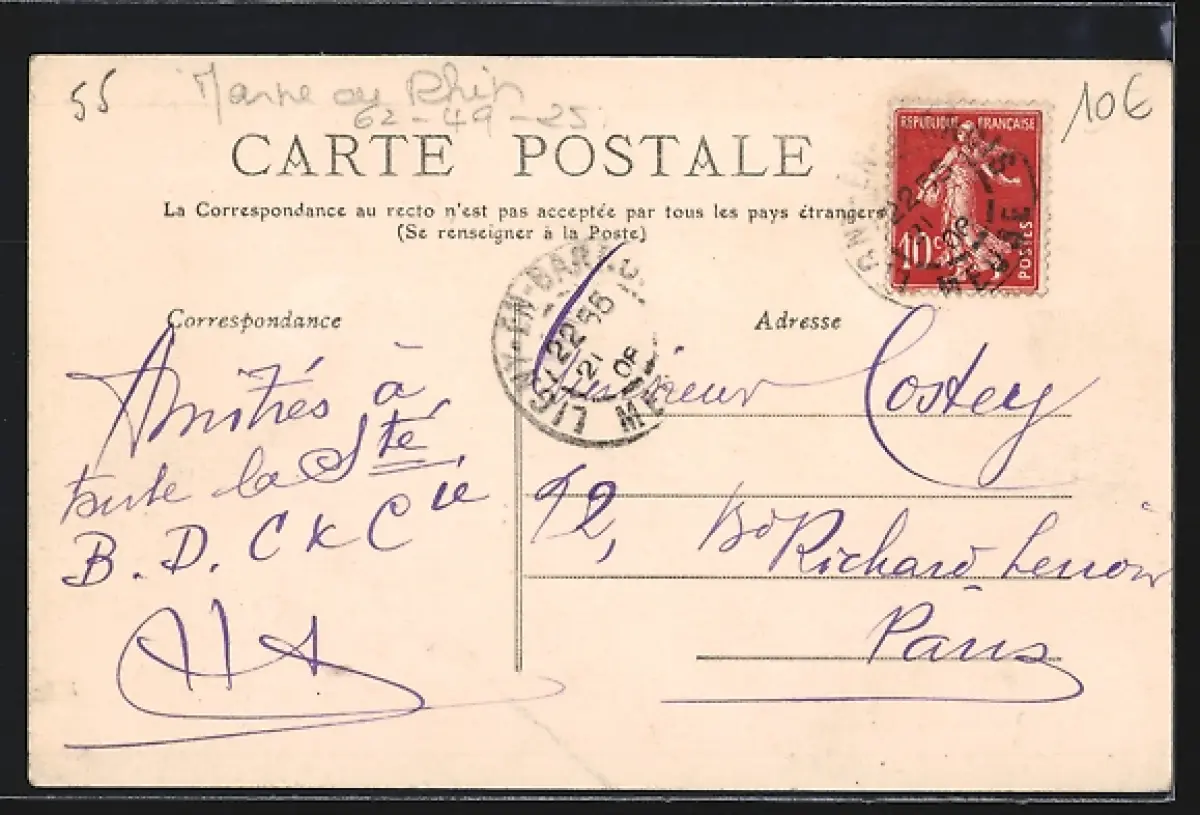 55
Marne au Rhin
62-49-25
10€
CARTE POSTALE
La Correspondance au recto n'est pas acceptée par tous les pays étrangers
(Se renseigner à la Poste)
REPUBLIQUE FRANÇAISE
10c
POSTES
LIGNY-EN-BARROIS
22 55
21
08
MEUSE
Correspondance
Amitiés à
toute la Sté
B. D. C & Cie
Adresse
Monsieur Costey
92, Bd Richard Lenoir
Paris